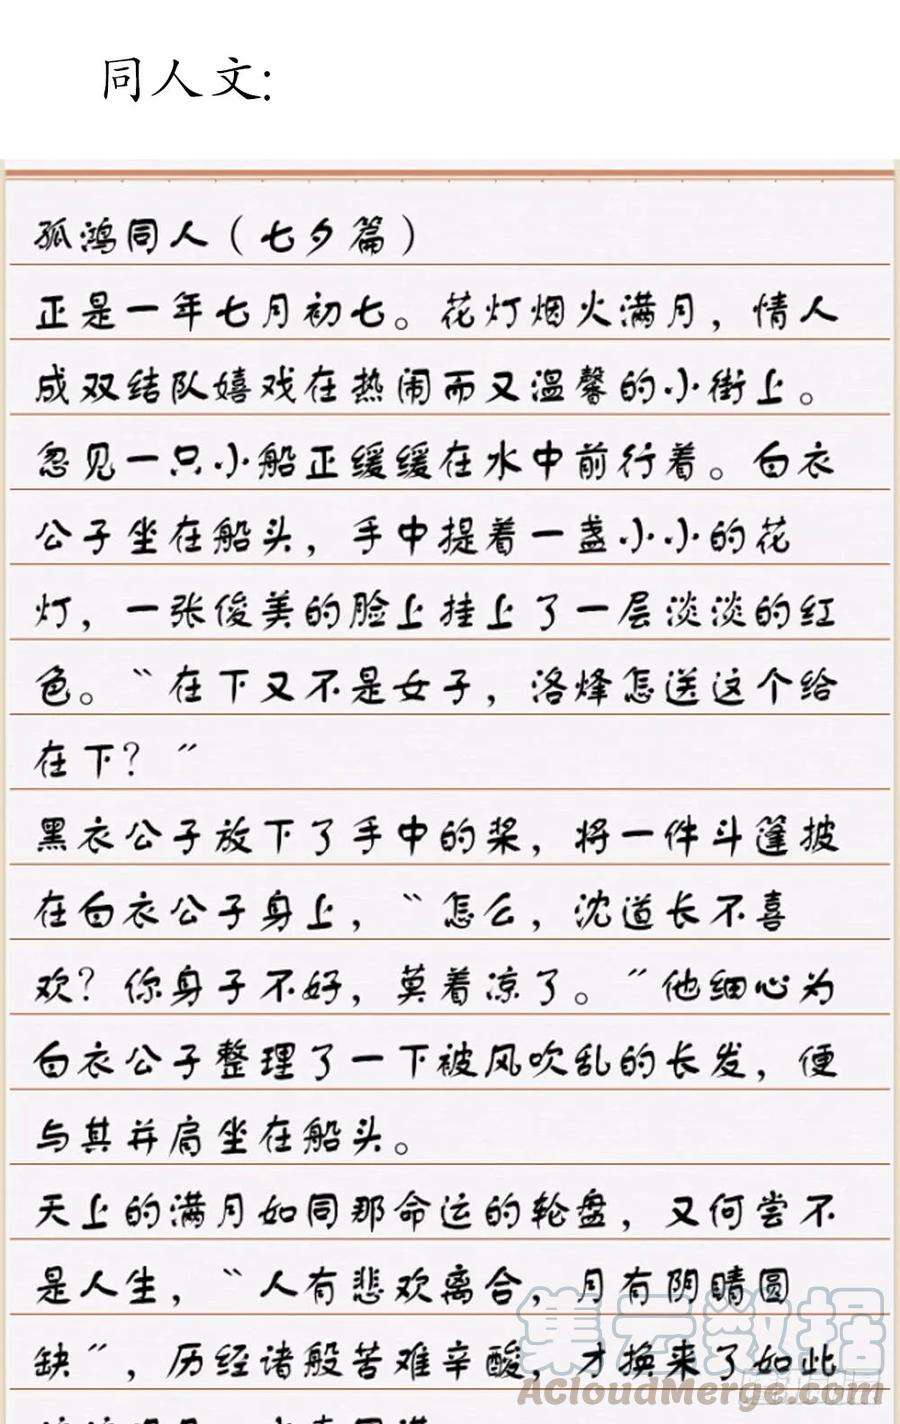 同人文:
孤鸿同人（七夕篇）
正是一年七月初七。花灯烟火满月，情人
成双结队嬉戏在热闹而又温馨的小街上。
忽见一只小船正缓缓在水中前行着。白衣
公子坐在船头，手中提着一盏小小的花
灯，一张俊美的脸上挂上了一层淡淡的红
色。“在下又不是女子，洛烽怎送这个给
在下？”
黑衣公子放下了手中的桨，将一件斗篷披
在白衣公子身上，“怎么，沈道长不喜
欢？你身子不好，莫着凉了。”他细心为
白衣公子整理了一下被风吹乱的长发，便
与其并肩坐在船头。
天上的满月如同那命运的轮盘，又何尝不
是人生，“人有悲欢离合，月有阴晴圆
缺”，历经诸般苦难辛酸，才换来了如此
集云数据
AcloudMerge.com